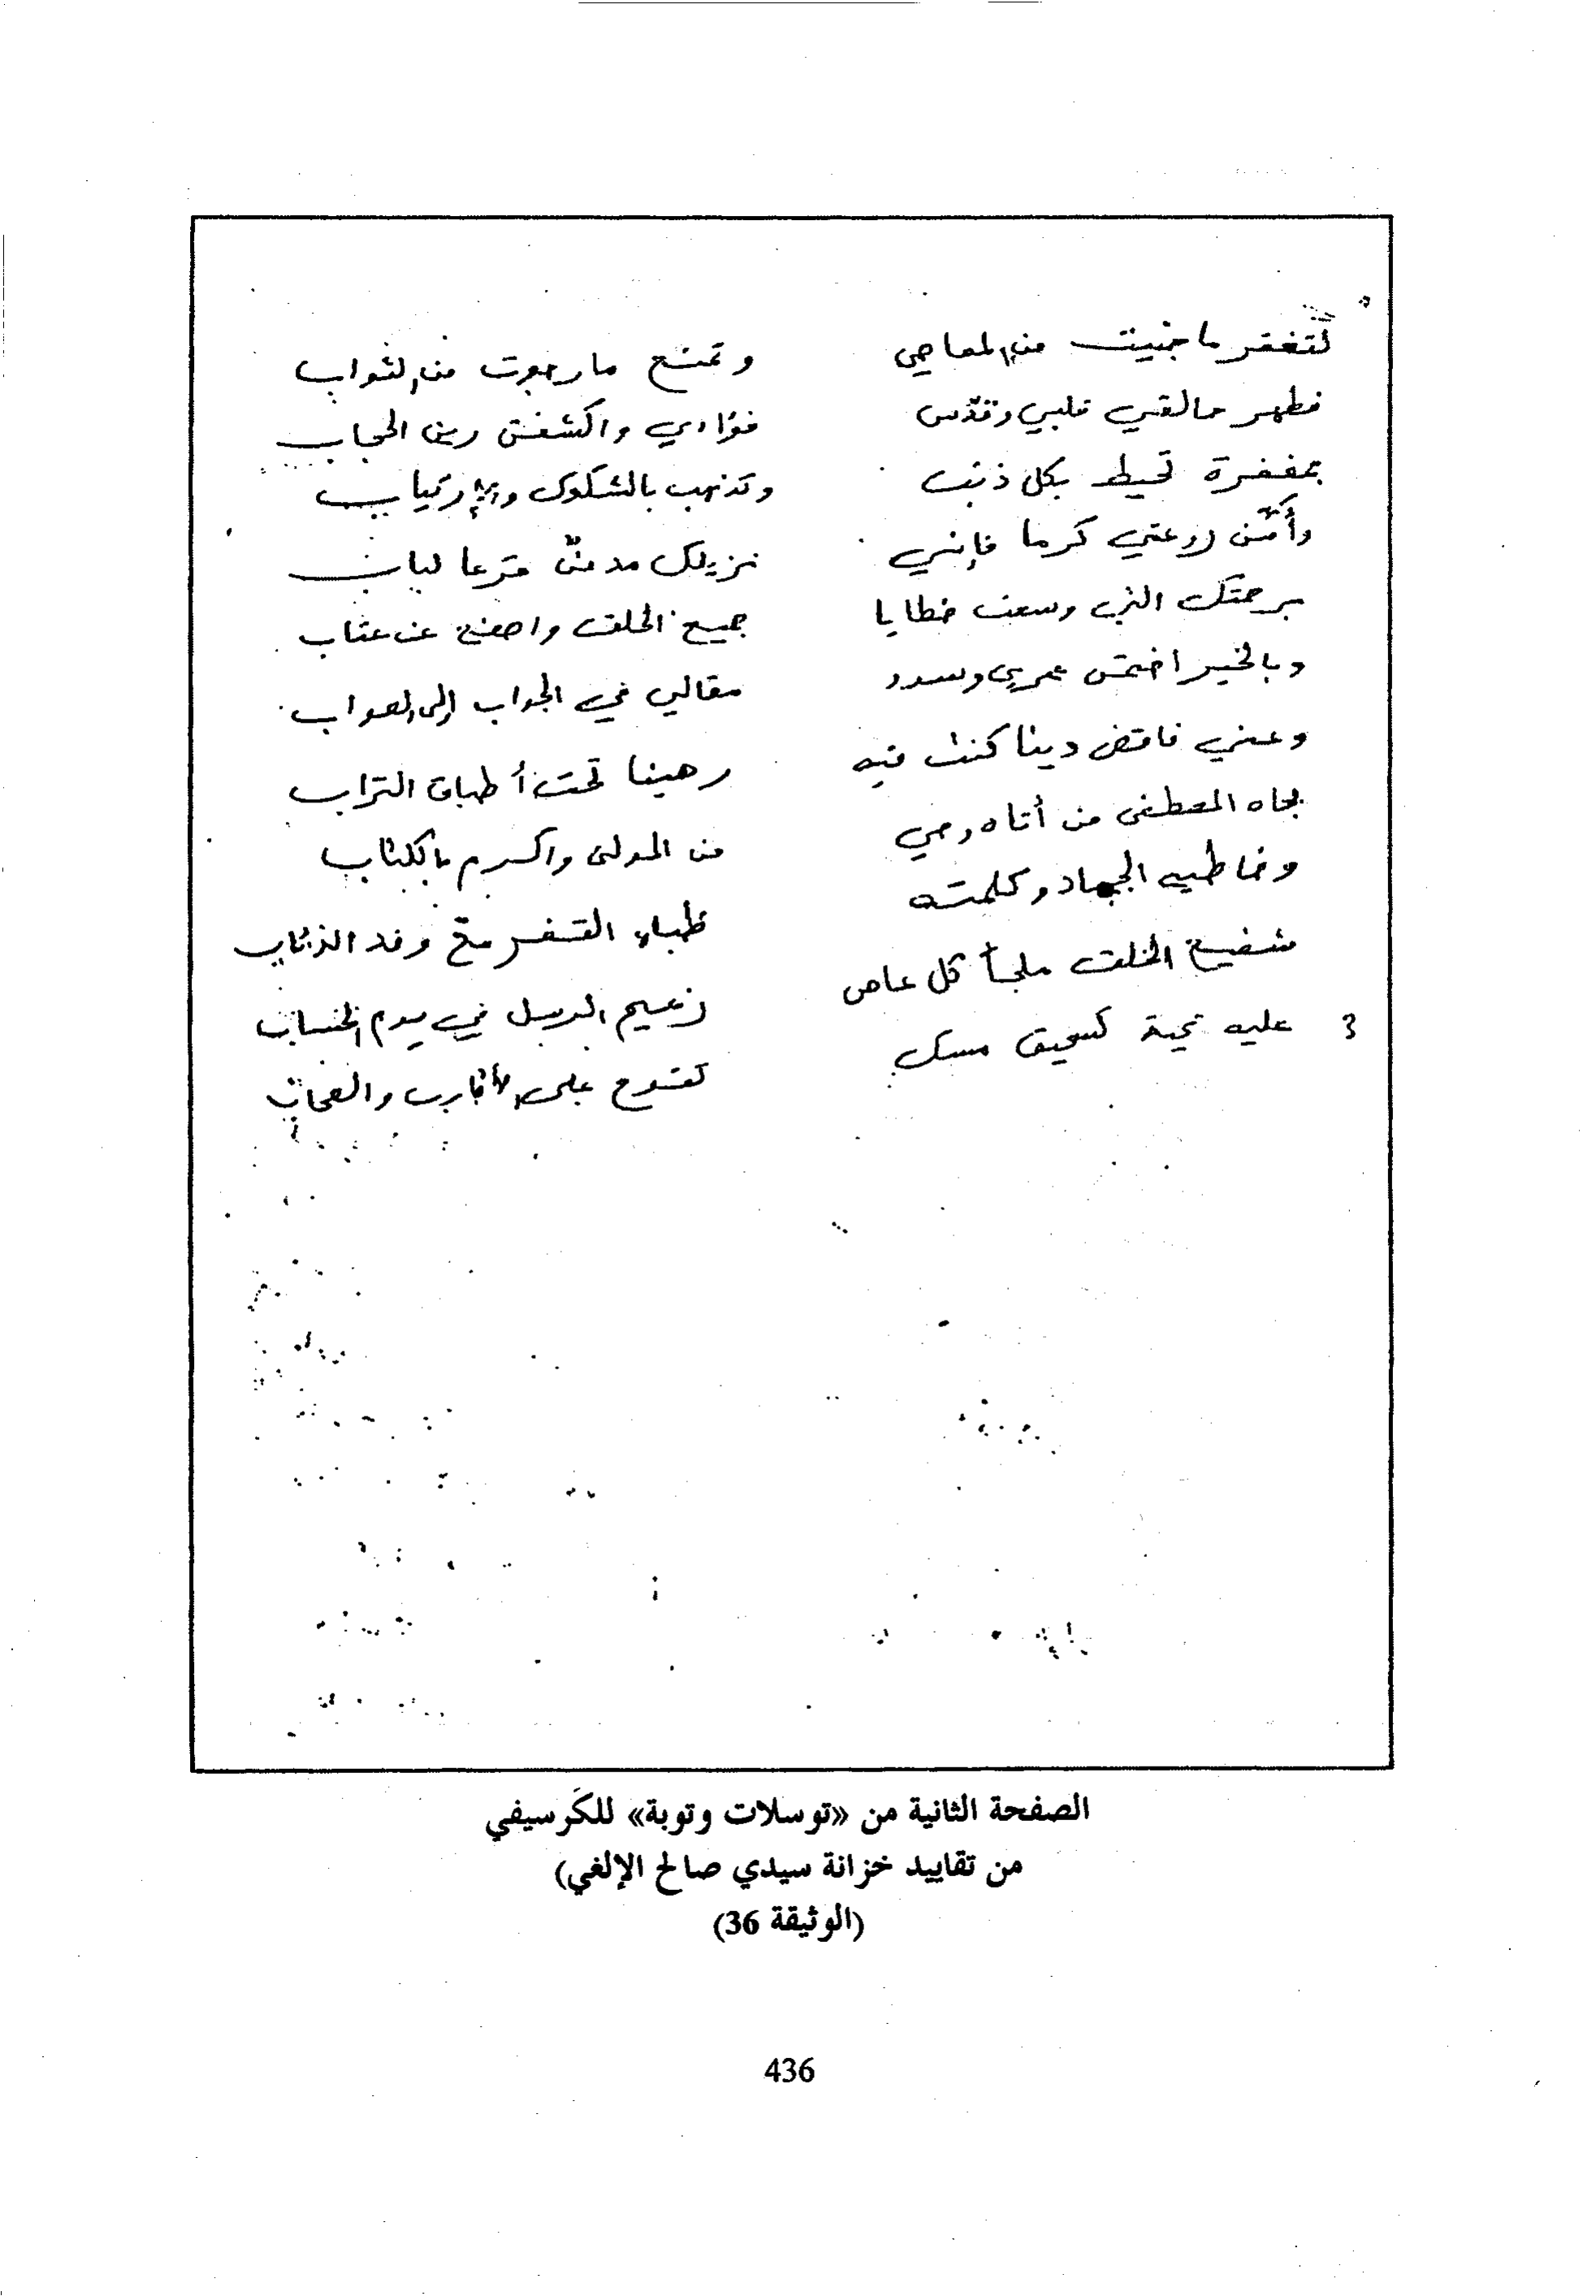 لتغفر ما جنيت من المعاصي وتمنح ما رجوت من الثواب
فطهر خالقي قلبي وقدّس فؤادي واكشفن رين الحجاب
بمغفرة تحيط بكل ذنب وتذهب بالشكوك والإرتياب
وأمّن روعتي كرما فإنني نزيلك مدمنٌ قرعا لباب
برحمتك التي وسعت خطايا جميع الخلق واصفح عن عتاب
وبالخير اختمن عمري وسدد مقالي في الجواب إلى الصواب
وعني فاقض دينا كنت فيه رهينا تحت أطباق التراب
بجاه المصطفى من أتاه وحي من المولى وأكرم بالكتاب
وخاطبه الجماد وكلمته ظباء القفر مع وفد الذئاب
شفيع الخلق ملجأ كل عاص زعيم الرسل في يوم الحساب
عليه تحية كسحيق مسك تفوح على الأقارب والصحاب
الصفحة الثانية من «توسلات وتوبة» للكَرسيفي
من تقاييد خزانة سيدي صالح الإلغي)
(الوثيقة 36)
436